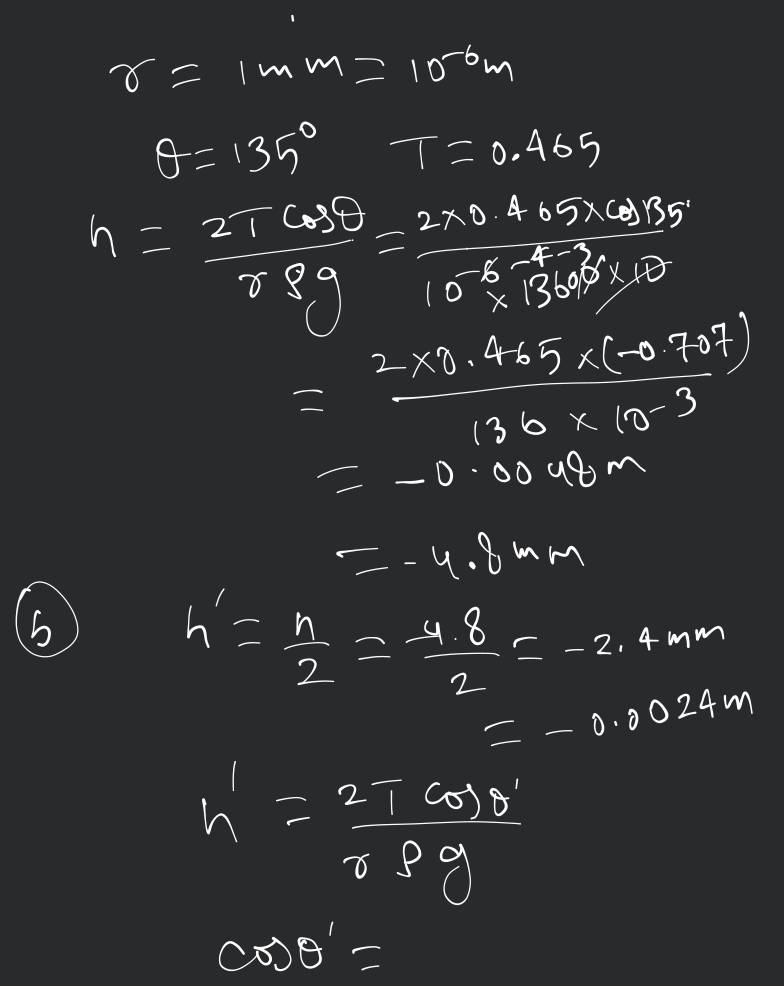 r = 1mm = 10⁻⁶m
θ = 135° T = 0.465
h = 2T cosθ / rρg = 2×0.465×cos135° / 10⁻⁶ ⁻⁴ ⁻³ × 13600 × 10
= 2×0.465×(-0.707) / 136 × 10⁻³
= -0.0048m
= -4.8mm
(b) h' = h/2 = -4.8/2 = -2.4mm
= -0.0024m
h' = 2T cosθ' / rρg
cosθ' =